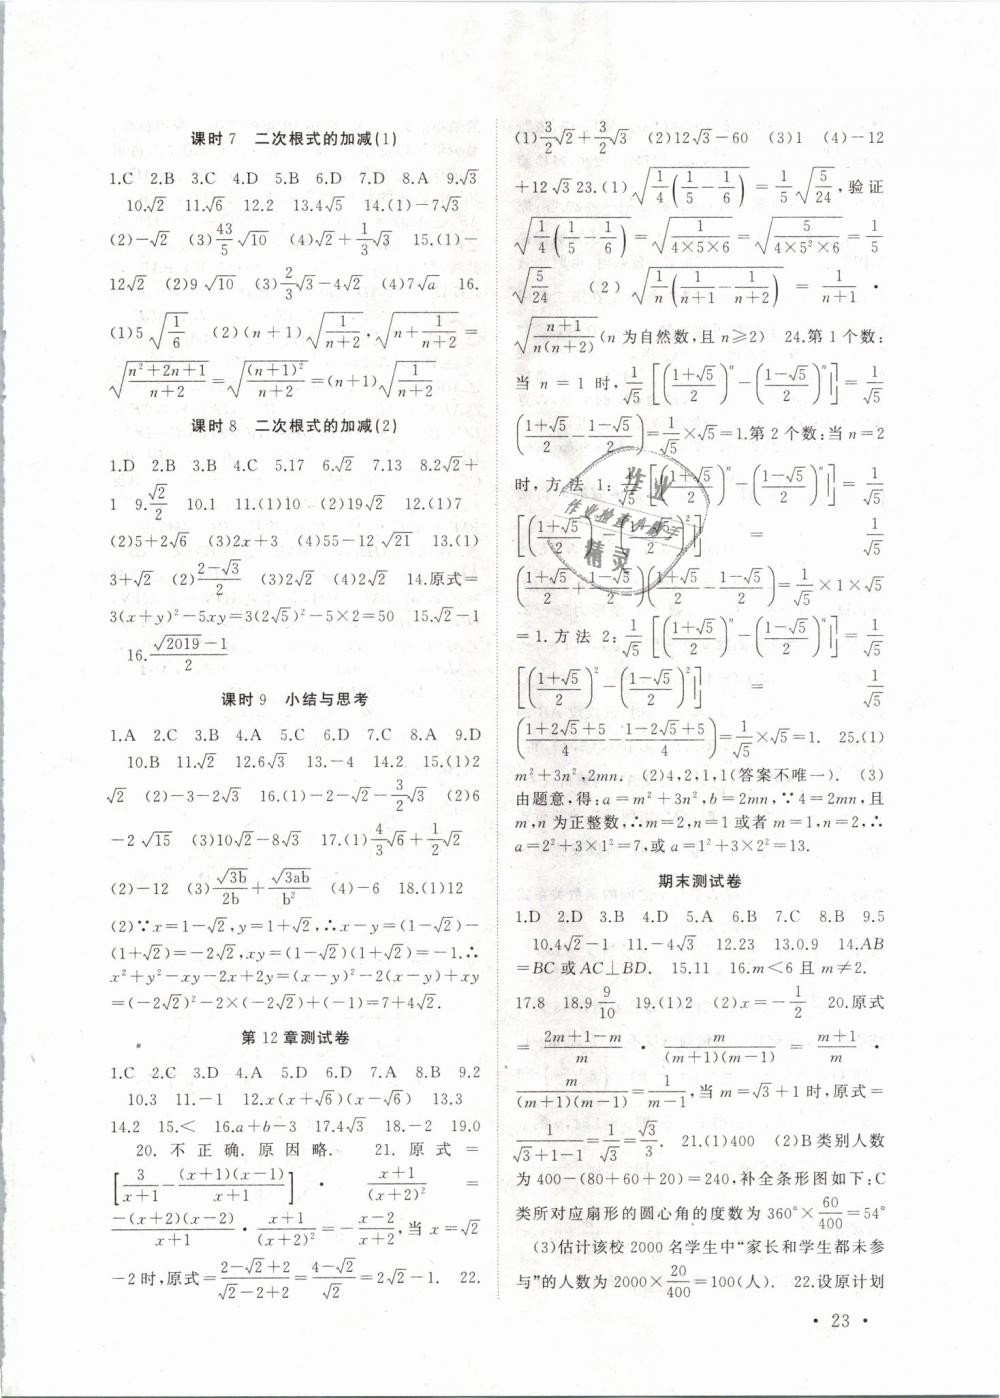 课时7 二次根式的加减(1)
1.C 2.B 3.C 4.D 5.B 6.D 7.D 8.A 9.√3
10.√2 11.√6 12.2 13.4√5 14.(1)-7√3
(2)-√2 (3)43/5 √10 (4)√2+1/3 √3 15.(1)-
12√2 (2)9√10 (3)2/3 √3-4√2 (4)7√a 16.
(1)5√(1/6) (2)(n+1)√(1/(n+2)),√(n+1/(n+2))=
√((n²+2n+1)/(n+2))=√((n+1)²/(n+2))=(n+1)√(1/(n+2))
课时8 二次根式的加减(2)
1.D 2.B 3.B 4.C 5.17 6.√2 7.13 8.2√2+
1 9.√2/2 10.1 11.(1)10 (2)19√2 12.(1)7
(2)5+2√6 (3)2x+3 (4)55-12√21 13.(1)
3+√2 (2)(2-√3)/2 (3)2√2 (4)4√2 14.原式=
3(x+y)²-5xy=3(2√5)²-5×2=50 15.√2-1
16.(√2019-1)/2
课时9 小结与思考
1.A 2.C 3.B 4.A 5.C 6.D 7.C 8.A 9.D
10.B 11.√2 12.6√3 13.-4 14.2 15.(1)2
√2 (2)-3-2√3 16.(1)-2-√2-3/2 √3 (2)6
-2√15 (3)10√2-8√3 17.(1)4/3 √6+1/2 √2
(2)-12 (3)√3b/2b+√3ab/b² (4)-6 18.(1)12
(2)∵x=1-√2,y=1+√2,∴x-y=(1-√2)-
(1+√2)=-2√2,xy=(1-√2)(1+√2)=-1.∴
x²+y²-xy-2x+2y=(x-y)²-2(x-y)+xy
=(-2√2)²-2×(-2√2)+(-1)=7+4√2.
第12章测试卷
1.C 2.C 3.D 4.A 5.D 6.D 7.A 8.B 9.2
10.3 11.-1 12.x(x+√6)(x-√6) 13.3
14.2 15.< 16.a+b-3 17.4√3 18.-2 19.0
20.不正确.原因略. 21.原式=
[3/(x+1)-(x+1)(x-1)/(x+1)]·(x+1)/(x+2)²=
-(x+2)(x-2)/(x+1)·(x+1)/(x+2)²=-(x-2)/(x+2),当x=√2
-2时,原式=(2-√2+2)/(√2-2+2)=(4-√2)/√2=2√2-1. 22.
(1)3/2 √2+3/2 √3 (2)12√3-60 (3)1 (4)-12
+12√3 23.(1)√(1/4(1/5-1/6))=1/5 √(5/24),验证
√(1/4(1/5-1/6))=√(1/(4×5×6))=√(5/(4×5²×6))=1/5
√(5/24) (2)√(1/n(1/(n+1)-1/(n+2)))=1/(n+1)·
√((n+1)/(n(n+2)))(n为自然数,且n≥2) 24.第1个数:
当n=1时,1/√5[((1+√5)/2)ⁿ-((1-√5)/2)ⁿ]=1/√5
((1+√5)/2-(1-√5)/2)=1/√5×√5=1.第2个数:当n=2
时,方法1:1/√5[((1+√5)/2)ⁿ-((1-√5)/2)ⁿ]=1/√5
[((1+√5)/2)²-((1-√5)/2)²]=1/√5
((1+√5)/2+(1-√5)/2)((1+√5)/2-(1-√5)/2)=1/√5×1×√5
=1.方法2:1/√5[((1+√5)/2)ⁿ-((1-√5)/2)ⁿ]=
[((1+√5)/2)²-((1-√5)/2)²]=1/√5
((1+2√5+5)/4-(1-2√5+5)/4)=1/√5×√5=1. 25.(1)
m²+3n²,2mn. (2)4,2,1,1(答案不唯一). (3)
由题意,得:a=m²+3n²,b=2mn,∵4=2mn,且
m,n为正整数,∴m=2,n=1或者m=1,n=2,∴
a=2²+3×1²=7,或a=1²+3×2²=13.
期末测试卷
1.D 2.D 3.B 4.D 5.A 6.B 7.C 8.B 9.5
10.4√2-1 11.-4√3 12.23 13.0.9 14.AB
=BC或AC⊥BD. 15.11 16.m<6且m≠2.
17.8 18.9 9/10 19.(1)2 (2)x=-1/2 20.原式
=(2m+1-m)/m·m/((m+1)(m-1))=(m+1)/m·
m/((m+1)(m-1))=1/(m-1),当m=√3+1时,原式=
1/(√3+1-1)=1/√3=√3/3. 21.(1)400 (2)B类别人数
为400-(80+60+20)=240,补全条形图如下:C
类所对应扇形的圆心角的度数为360°×60/400=54°
(3)估计该校2000名学生中“家长和学生都未参
与”的人数为2000×20/400=100(人). 22.设原计划
·23·
作业
作业检查小助手
精灵